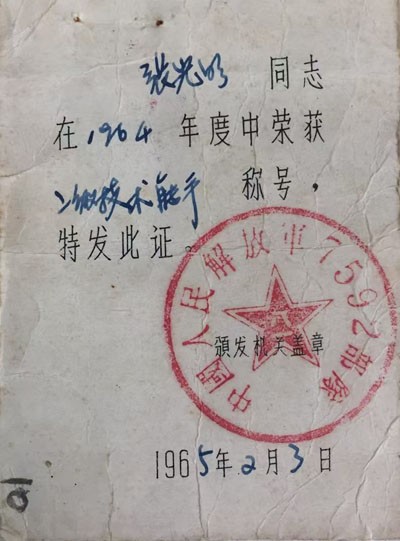 张光明 同志
在1964 年度中荣获
二级技术能手 称号，
特发此证。
中國人民解放军7592部隊
八一
頒发机关盖章
1965年2月3日